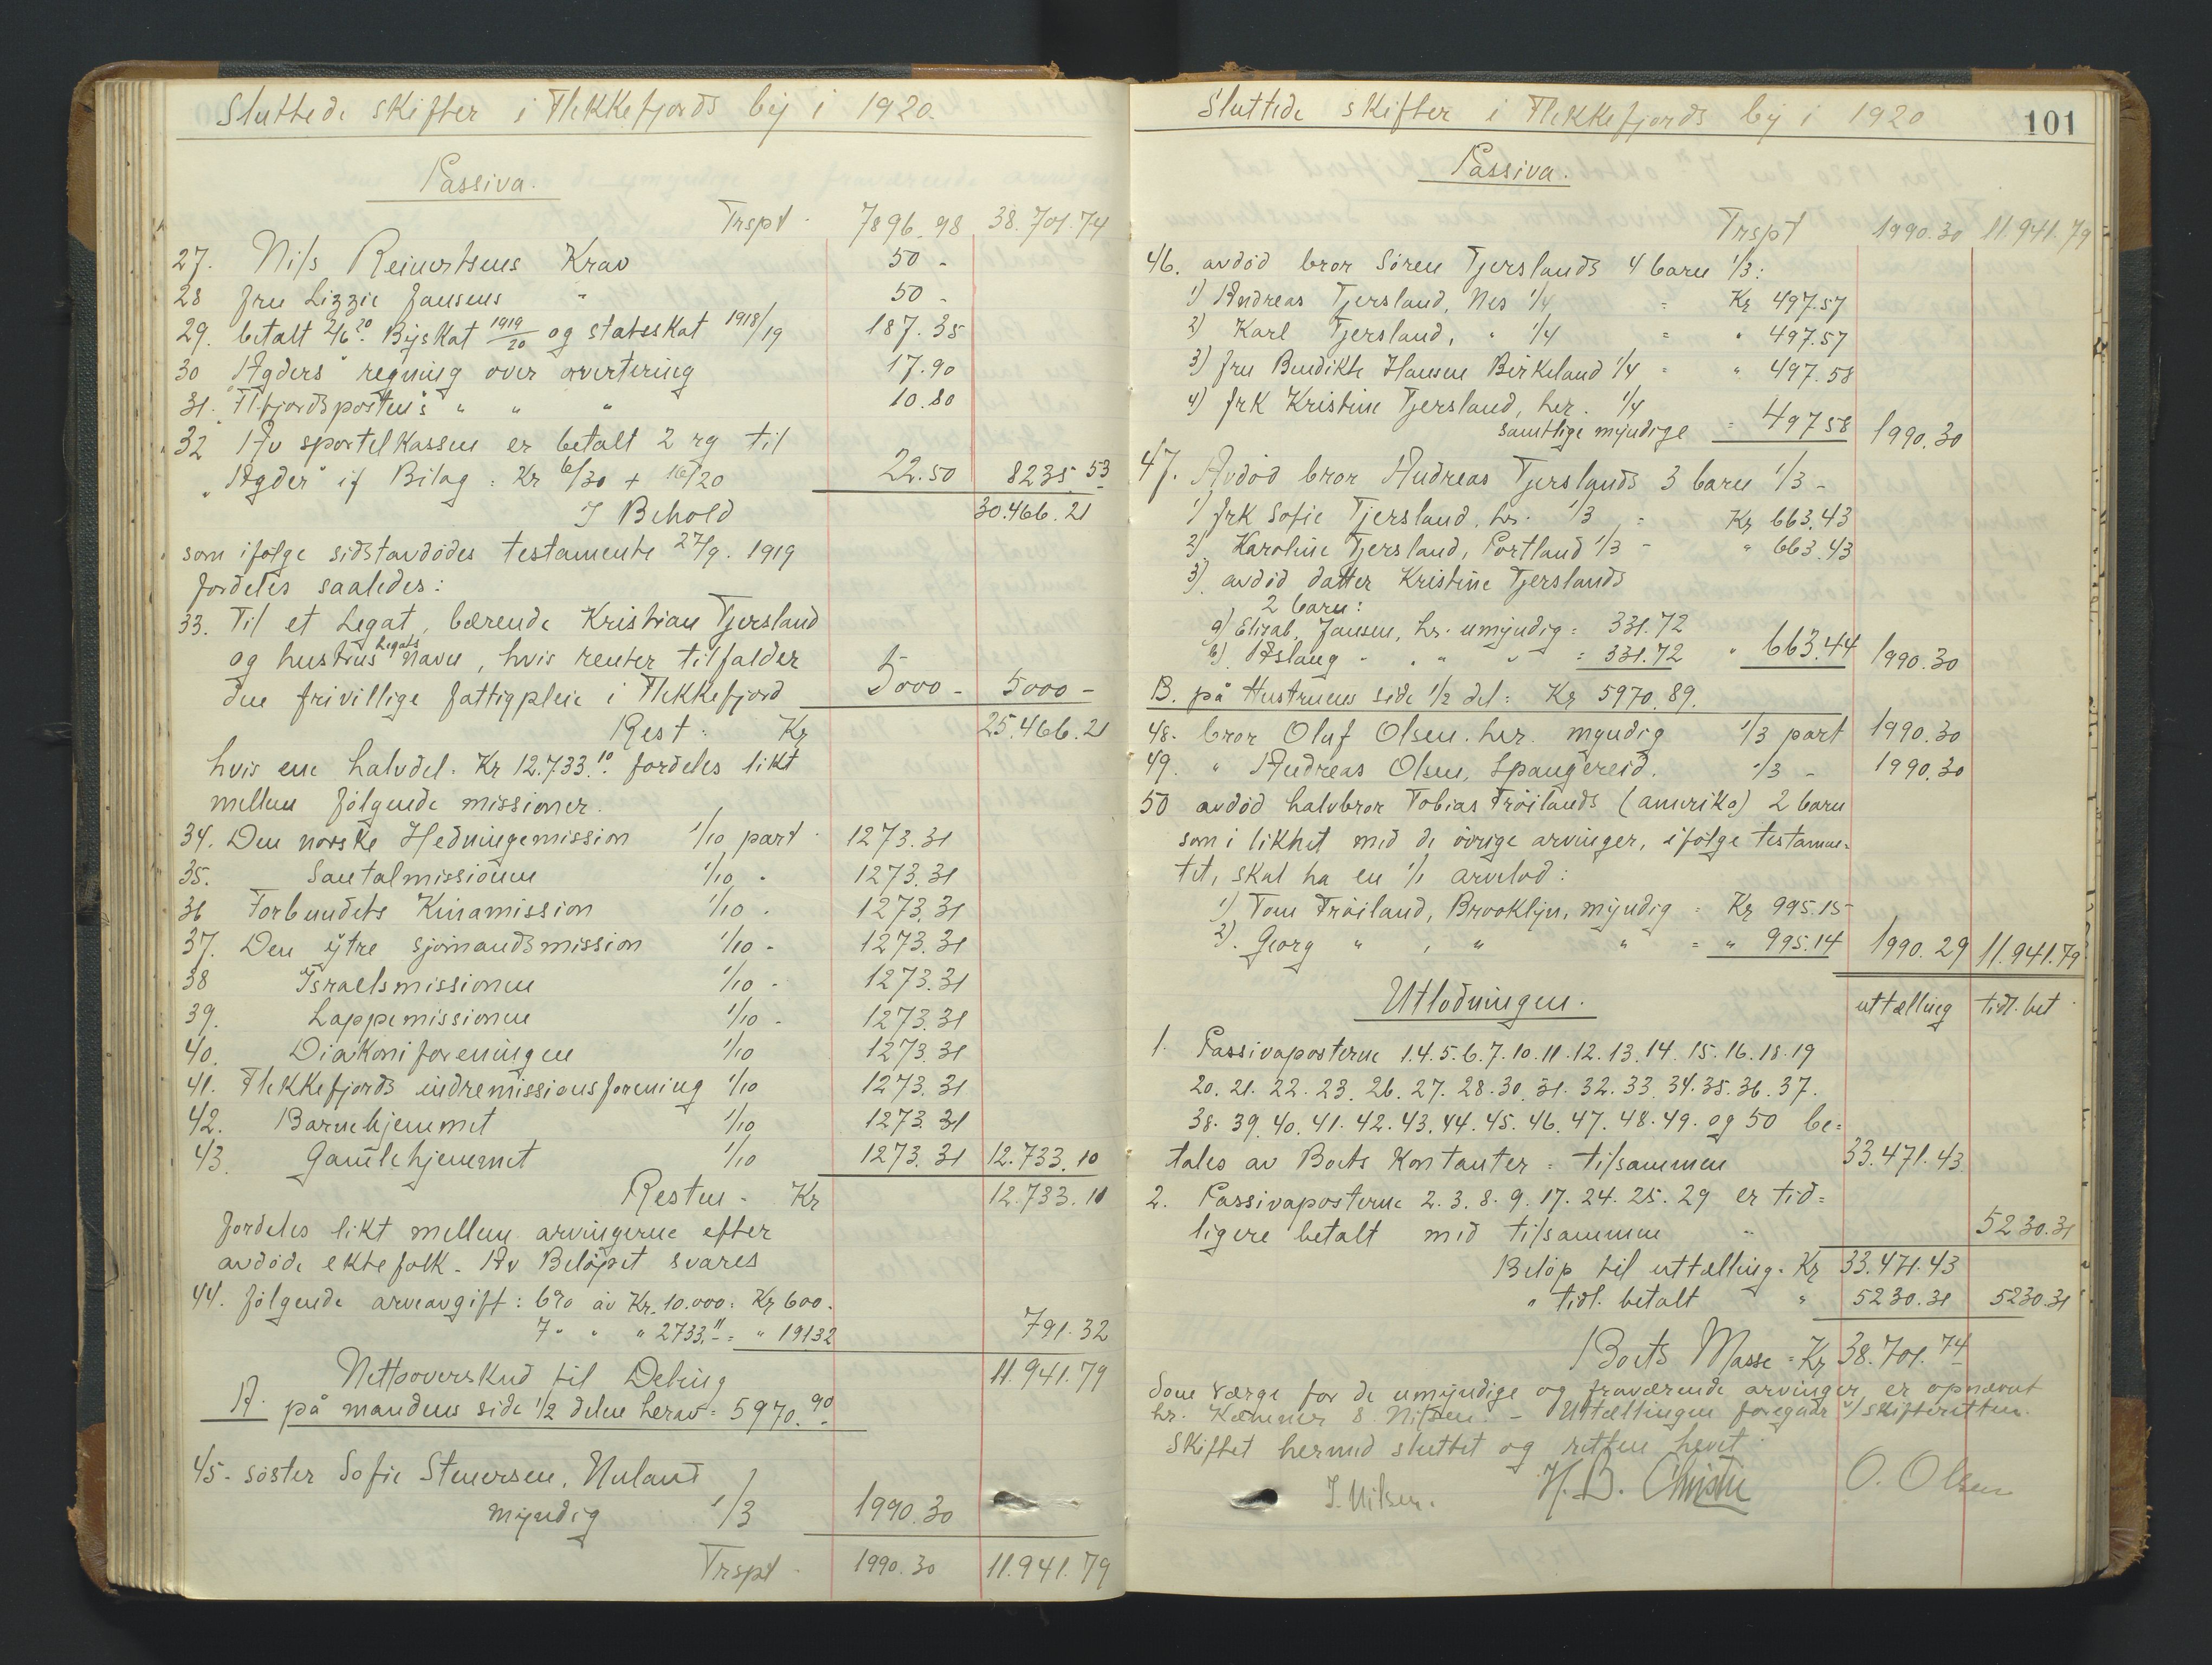 Sluttede skifter i Flekkefjords by i 1920.
Passiva.
Trspt. 7896.98 38.701.74
27. Nils Reinertsens Krav 50 -
28 fru Lizzie Jansens " 50 -
29. betalt 2/6 20. Byskat 1919/20 og statsskat 1918/19 187.35
30 "Agders" regning over avertering 17.90
31. "Fl.fjordsposten"s " " " 10.80
32 Av sportelkassen er betalt 2 rg til
"Agder" if Bilag: Kr 6/30 + 16/20 22.50 8235.53
I Behold 30.466.21
som ifølge sidstavdødes testamente 27/9. 1919
fordeles saaledes:
33. Til et Legat, bærende Kristian Tjersland
og hustrus legats navn, hvis renter tilfalder
den frivillige fattigpleie i Flekkefjord 5000 - 5000 -
Rest: Kr 25.466.21
hvis ene halvdel. Kr 12.733.10 fordeles likt
mellem følgende missioner.
34. Den norske Hedningemission 1/10 part. 1273.31
35. Santalmissionen 1/10 " 1273.31
36 Forbundets Kinamission 1/10 . 1273.31
37. Den ytre sjømandsmission 1/10 - 1273.31
38 Israelsmissionen 1/10 - 1273.31
39. Lappemissionen 1/10 - 1273.31
40. Diakoniforeningen 1/10 1273.31
41. Flekkefjords indremissionsforening 1/10 1273.31
42. Barnehjemmet 1/10 1273.31
43. Gamlehjemmet 1/10 1273.31 12.733.10
Resten - Kr 12.733.11
fordeles likt mellem arvingerne efter
avdøde ektefolk. Av Beløpet svares
44. følgende arveavgift: 6% av Kr. 10.000: Kr 600.
7 " " " 2733.11 = " 191 32 791.32
Nettooverskud til Deling 11.941.79
A. på mandens side 1/2 delen herav = 5970.90
45. søster Sofie Stenersen, Nuland
myndig 1/3 1990.30
Trspt. 1990.30 11.941.79
Sluttede skifter i Flekkefjords by i 1920
101
Passiva.
Trspt 1990.30 11.941.79
46. avdød bror Søren Tjerslands 4 barn 1/3:
1) Andreas Tjersland, Nes 1/4 = Kr 497.57
2) Karl Tjersland, " 1/4 = " 497.57
3) fru Bendikte Hansen Birkeland 1/4 = " 497.58
4) frk Kristine Tjersland, her. 1/4
samtlige myndige = 497 58 1990.30
47. Avdød bror Andreas Tjerslands 3 barn 1/3 -
1) frk Sofie Tjersland, hr. 1/3 = Kr 663.43
2) Karoline Tjersland, Portland 1/3 - " 663.43
3). avdød datter Kristine Tjerslands
2 barn:
a) Elisab. Jansen, hr. umyndig = 331.72
b) Aslaug " . " " = 331.72 " 663.44 1990.30
B. på Hustruens side 1/2 del = Kr 5970.89.
48. bror Oluf Olsen. her. myndig 1/3 part 1990.30
49. " Andreas Olsen, Spangereid. 1/3 - 1990.30
50 avdød halvbror Tobias Frøilands (amerika) 2 barn
som i likhet med de øvrige arvinger, ifølge testamen-
tet, skal ha en 1/1 arvelod:
1) Tom Frøiland, Brooklyn, myndig = Kr 995.15
2). Georg " , " " = " 995.14 1990.29 11.941.79
Utlodningen.
uttælling tidl. bet.
1. Passivaposterne 1.4.5.6.7.10.11.12.13.14.15.16.18.19
20.21.22.23.26.27.28.30.31.32.33.34.35.36.37.
38.39.40.41.42.43.44.45.46.47.48.49. og 50 be=
tales av Boets Kontanter = tilsammen 33.471.43
2. Passivaposterne 2.3.8.9.17.24.25.29 er tid=
ligere betalt med tilsammen " 5230.31
Beløp til uttælling. Kr 33.471.43
" tidl. betalt " 5230.31 5230.31
Boets Masse = Kr 38.701.74
Som værge for de umyndige og fraværende arvinger, er opnævnt
hr. Kæmner S. Nilsen. - Uttællingen foregaar v/ skifteretten.
Skiftet hermed sluttet og retten hevet.
J. Nilsen. H.B. Christie O. Olsen